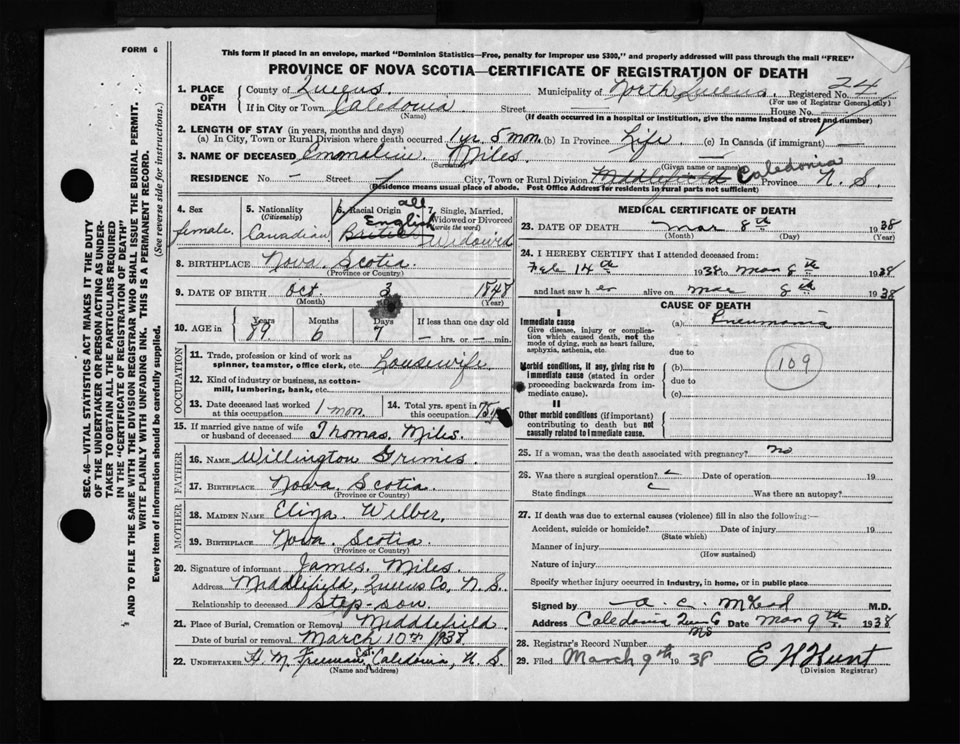 FORM 6
This form if placed in an envelope, marked "Dominion Statistics—Free, penalty for improper use $300," and properly addressed will pass through the mail "FREE"
PROVINCE OF NOVA SCOTIA—CERTIFICATE OF REGISTRATION OF DEATH
1. PLACE OF DEATH
County of Queens. Municipality of North Queens. Registered No. 24
(For use of Registrar General only)
If in City or Town Caledonia Street House No.
(Name) (If death occurred in a hospital or institution, give the name instead of street and number)
2. LENGTH OF STAY (in years, months and days)
(a) In City, Town or Rural Division where death occurred 1 yr. 5 mon. (b) In Province Life (c) In Canada (if immigrant) —
3. NAME OF DECEASED Emmaline Miles.
(Surname) (Given name or names)
RESIDENCE No. - Street City, Town or Rural Division Middlefield Caledonia Province N. S.
(Residence means usual place of abode. Post Office Address for residents in rural parts not sufficient)
4. Sex
female.
5. Nationality
(Citizenship)
Canadian
6. Racial Origin
all
English
British
7. Single, Married, Widowed or Divorced
(write the word)
Widowed
8. BIRTHPLACE Nova Scotia.
(Province or Country)
9. DATE OF BIRTH Oct. 3 1848
(Month) (Year)
10. AGE in
Years
89.
Months
6
Days
7
If less than one day old
— hrs. or — min.
OCCUPATION
11. Trade, profession or kind of work as spinner, teamster, office clerk, etc. Housewife.
12. Kind of industry or business, as cotton-mill, lumbering, bank, etc.
13. Date deceased last worked at this occupation 1 mon.
14. Total yrs. spent in this occupation
15. If married give name of wife or husband of deceased Thomas Miles.
FATHER
16. Name Willington Grimes.
17. Birthplace Nova Scotia.
(Province or Country)
MOTHER
18. Maiden Name Eliza Wilber.
19. Birthplace Nova Scotia.
(Province or Country)
20. Signature of informant James Miles.
Address Middlefield, Queens Co, N. S.
Relationship to deceased Step-son.
21. Place of Burial, Cremation or Removal Middlefield.
Date of burial or removal March 10th 1938
22. Undertaker H. M. Freeman Caledonia, N. S.
(Name and address)
MEDICAL CERTIFICATE OF DEATH
23. DATE OF DEATH Mar 8th 1938
(Month) (Day) (Year)
24. I HEREBY CERTIFY that I attended deceased from:
Feb 14th 1938 to Mar 8th 1938
and last saw her alive on Mar 8th 1938
CAUSE OF DEATH
I
Immediate cause
Give disease, injury or complication which caused death, not the mode of dying, such as heart failure, asphyxia, asthenia, etc.
(a) Pneumonia
due to
Morbid conditions, if any, giving rise to immediate cause (stated in order proceeding backwards from immediate cause).
(b)
109
due to
(c)
II
Other morbid conditions (if important) contributing to death but not causally related to immediate cause.
25. If a woman, was the death associated with pregnancy? no
26. Was there a surgical operation? Date of operation 19
State findings Was there an autopsy?
27. If death was due to external causes (violence) fill in also the following:—
Accident, suicide or homicide? Date of injury 19
(State which)
Manner of injury
(How sustained)
Nature of injury
Specify whether injury occurred in industry, in home, or in public place
Signed by A. C. M.D.
Address Caledonia Queens Co NS Date Mar 9th 1938
28. Registrar's Record Number
29. Filed March 9th 1938 E H Hunt
(Division Registrar)
SEC. 46—VITAL STATISTICS ACT MAKES IT THE DUTY
OF THE UNDERTAKER OR PERSON ACTING AS UNDER-
TAKER TO OBTAIN ALL THE PARTICULARS REQUIRED
IN THE "CERTIFICATE OF REGISTRATION OF DEATH"
AND TO FILE THE SAME WITH THE DIVISION REGISTRAR WHO SHALL ISSUE THE BURIAL PERMIT.
WRITE PLAINLY WITH UNFADING INK. THIS IS A PERMANENT RECORD.
Every item of information should be carefully supplied. (See reverse side for instructions.)